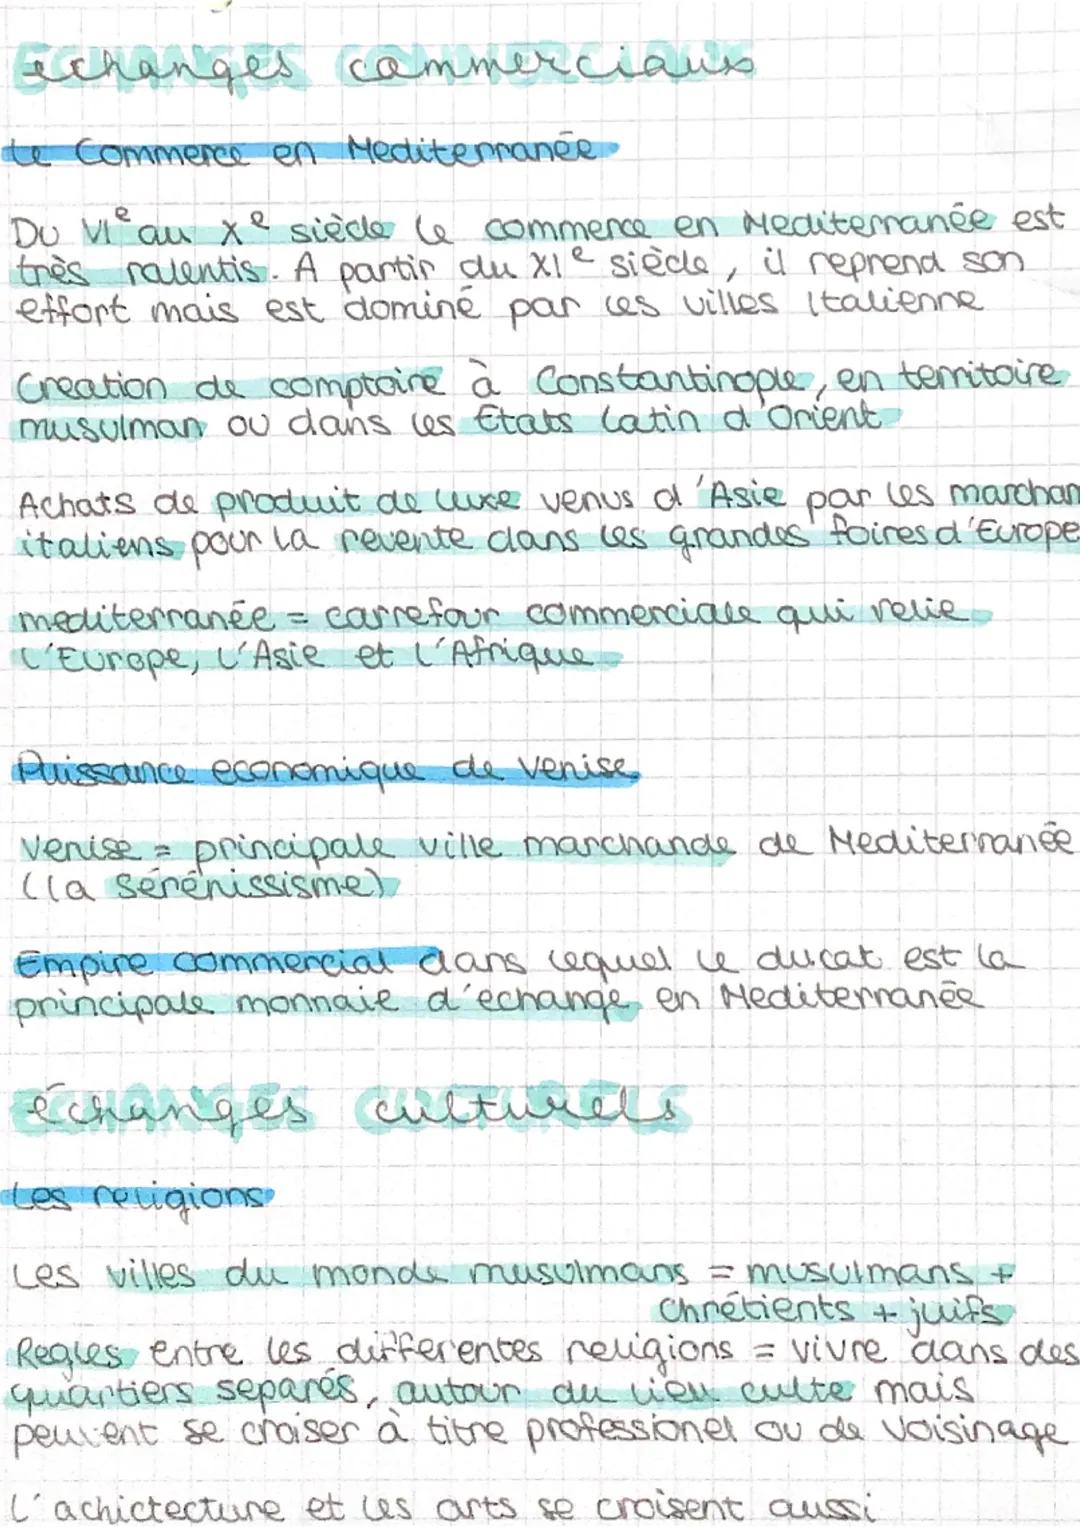 échanges commerciaux
Le Commerce en Mediterranée
Du VIe au Xe siècle le commerce en Mediterranée est
très ralentis. A partir du XIe siècle, il reprend son
effort mais est dominé par les villes Italienne
Creation de comptoire à Constantinople, en territoire
musulman ou dans les États latin d'Orient
Achats de produit de luxe venus d'Asie par les marchan
italiens pour la revente dans les grandes foires d'Europe
mediterranée = carrefour commerciale qui relie
l'Europe, l'Asie et l'Afrique
Puissance economique de venise
venise = principale ville marchande de Mediterranée
(la sérénissisme)
Empire commercial dans lequel le ducat est la
principale monnaie d'échange en Mediterranée
échanges culturels
Les religions
Les villes du monde musulmans = musulmans +
Chrétients + juifs
Regles entre les differentes religions = vivre dans des
quartiers separés, autour du lieu culte mais
peuvent se croiser à titre professionel ou de voisinage
L'achictecture et les arts se croisent aussi